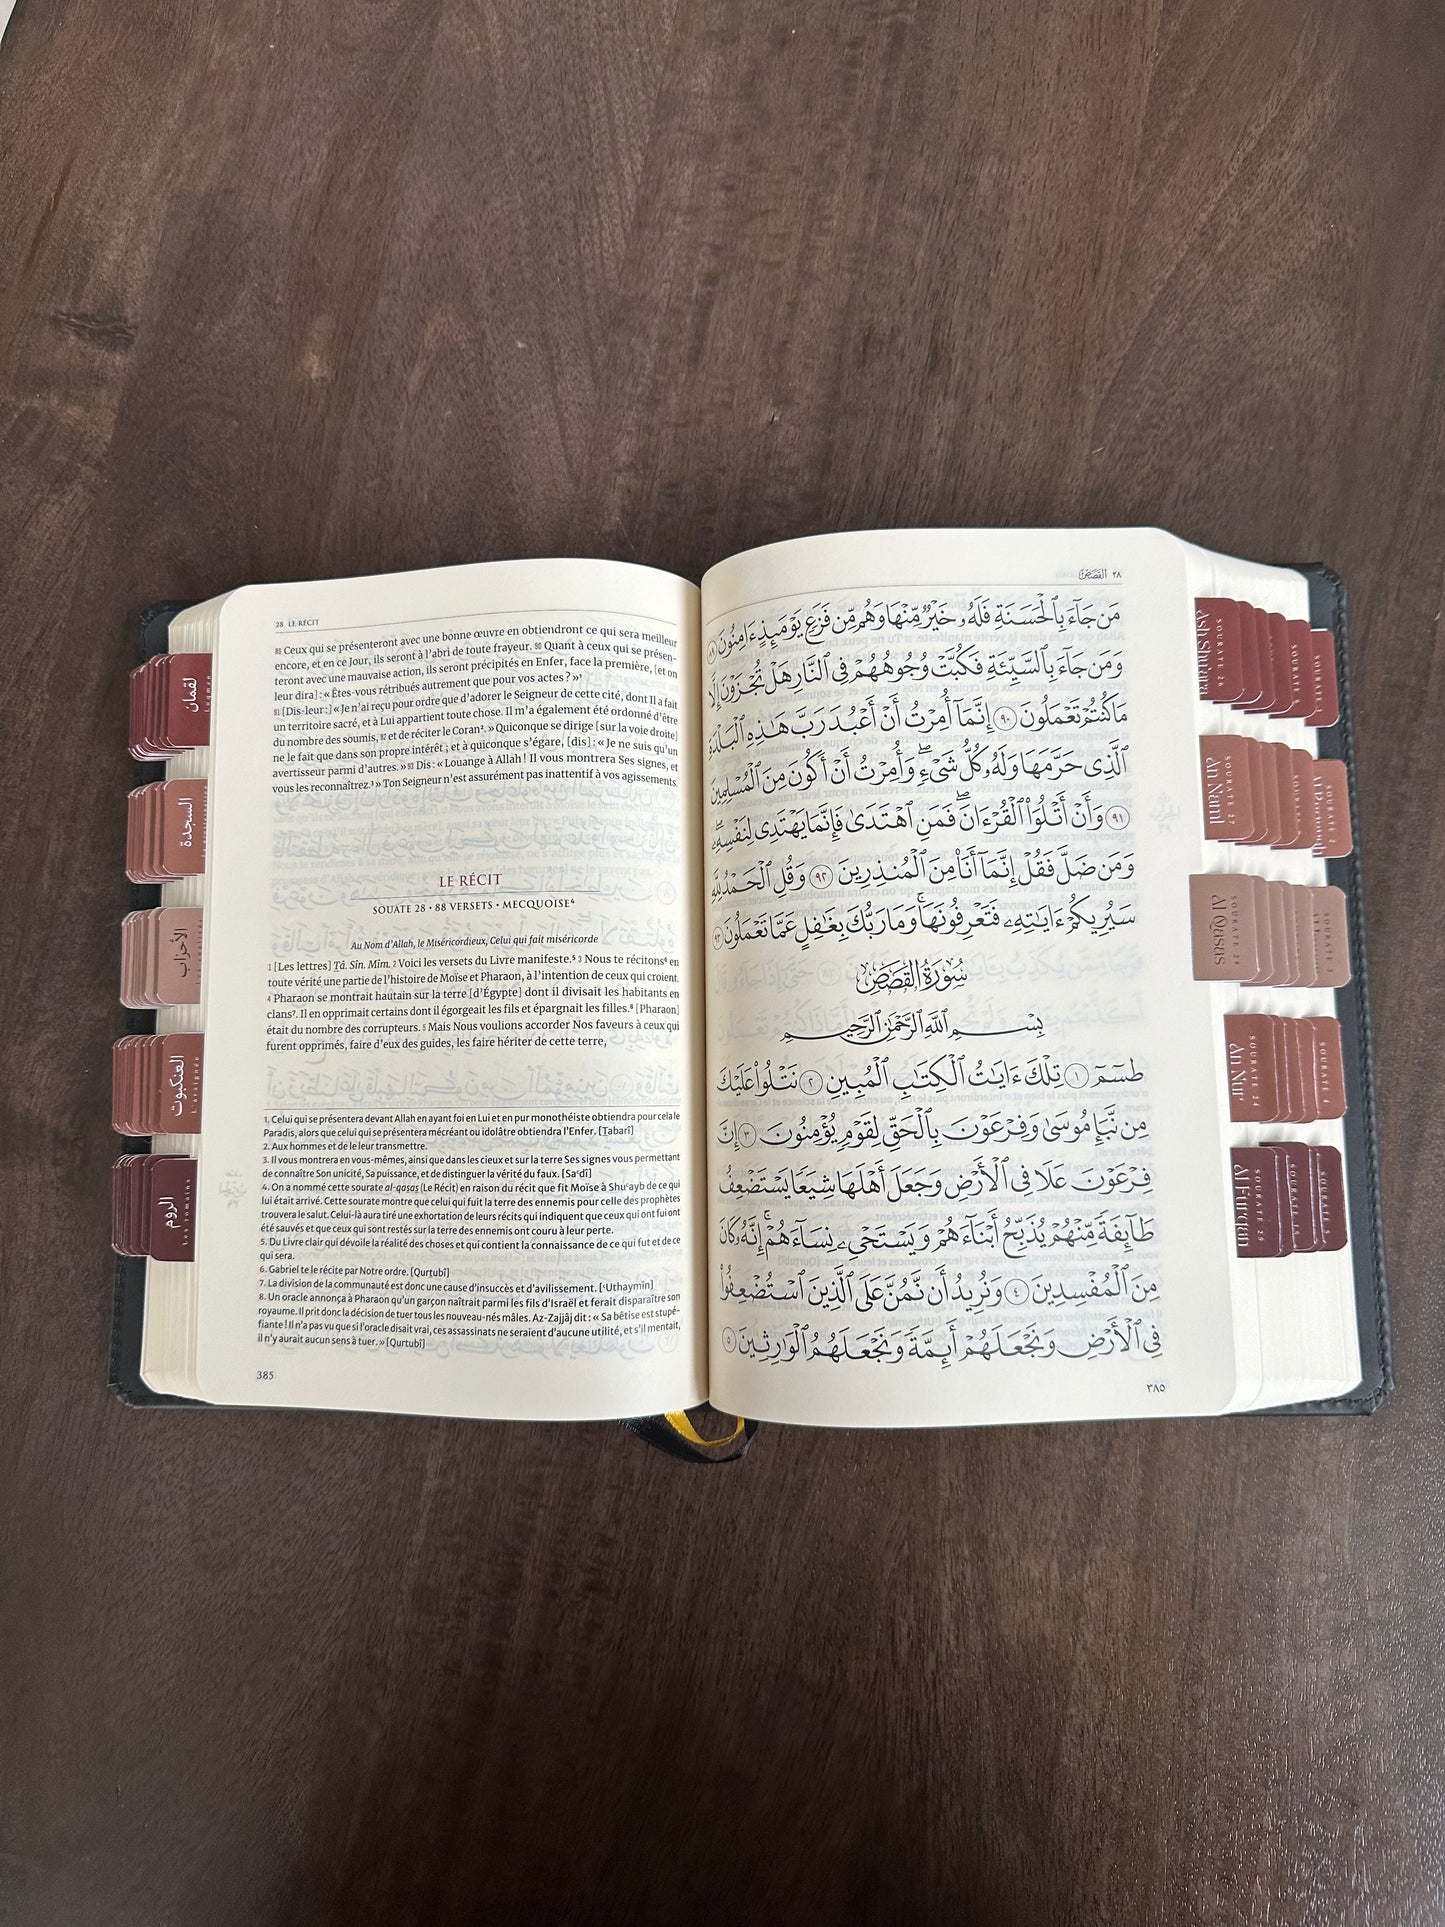 28 LE RÉCIT
89 Ceux qui se présenteront avec une bonne œuvre en obtiendront ce qui sera meilleur
encore, et en ce Jour, ils seront à l'abri de toute frayeur. 90 Quant à ceux qui se présen-
teront avec une mauvaise action, ils seront précipités en Enfer, face la première, [et on
leur dira] : « Êtes-vous rétribués autrement que pour vos actes ? »¹
91 [Dis-leur :] « Je n'ai reçu pour ordre que d'adorer le Seigneur de cette cité, dont Il a fait
un territoire sacré, et à Lui appartient toute chose. Il m'a également été ordonné d'être
du nombre des soumis, 92 et de réciter le Coran². » Quiconque se dirige [sur la voie droite]
ne le fait que dans son propre intérêt ; et à quiconque s'égare, [dis] : « Je ne suis qu'un
avertisseur parmi d'autres. » 93 Dis : « Louange à Allah ! Il vous montrera Ses signes, et
vous les reconnaîtrez.³ » Ton Seigneur n'est assurément pas inattentif à vos agissements.
LE RÉCIT
SOUATE 28 • 88 VERSETS • MECQUOISE⁴
Au Nom d'Allah, le Miséricordieux, Celui qui fait miséricorde
1 [Les lettres] Ṭâ. Sîn. Mîm. 2 Voici les versets du Livre manifeste.⁵ 3 Nous te récitons⁶ en
toute vérité une partie de l'histoire de Moïse et Pharaon, à l'intention de ceux qui croient.
4 Pharaon se montrait hautain sur la terre [d'Égypte] dont il divisait les habitants en
clans⁷. Il en opprimait certains dont il égorgeait les fils et épargnait les filles.⁸ [Pharaon]
était du nombre des corrupteurs. 5 Mais Nous voulions accorder Nos faveurs à ceux qui
furent opprimés, faire d'eux des guides, les faire hériter de cette terre,
1. Celui qui se présentera devant Allah en ayant foi en Lui et en pur monothéiste obtiendra pour cela le
Paradis, alors que celui qui se présentera mécréant ou idolâtre obtiendra l'Enfer. [Tabarî]
2. Aux hommes et de le leur transmettre.
3. Il vous montrera en vous-mêmes, ainsi que dans les cieux et sur la terre Ses signes vous permettant
de connaître Son unicité, Sa puissance, et de distinguer la vérité du faux. [Saʿdî]
4. On a nommé cette sourate al-qasas (Le Récit) en raison du récit que fit Moïse à Shuʿayb de ce qui
lui était arrivé. Cette sourate montre que celui qui fuit la terre des ennemis pour celle des prophètes
trouvera le salut. Celui-là aura tiré une exhortation de leurs récits qui indiquent que ceux qui ont fui ont
été sauvés et que ceux qui sont restés sur la terre des ennemis ont couru à leur perte.
5. Du Livre clair qui dévoile la réalité des choses et qui contient la connaissance de ce qui fut et de ce
qui sera.
6. Gabriel te le récite par Notre ordre. [Qurṭubî]
7. La division de la communauté est donc une cause d'insuccès et d'avilissement. [ʿUthaymîn]
8. Un oracle annonça à Pharaon qu'un garçon naîtrait parmi les fils d'Israël et ferait disparaître son
royaume. Il prit donc la décision de tuer tous les nouveau-nés mâles. Az-Zajjâj dit : « Sa bêtise est stupé-
fiante ! Il n'a pas vu que si l'oracle disait vrai, ces assassinats ne seraient d'aucune utilité, et s'il mentait,
il n'y aurait aucun sens à tuer. » [Qurtubî]
385
٢٨ القصص
مَن جَآءَ بِٱلْحَسَنَةِ فَلَهُۥ خَيْرٌ مِّنْهَا وَهُم مِّن فَزَعٍ يَوْمَئِذٍ ءَامِنُونَ ٨٩
وَمَن جَآءَ بِٱلسَّيِّئَةِ فَكُبَّتْ وُجُوهُهُمْ فِى ٱلنَّارِ هَلْ تُجْزَوْنَ إِلَّا
مَا كُنتُمْ تَعْمَلُونَ ٩٠ إِنَّمَآ أُمِرْتُ أَنْ أَعْبُدَ رَبَّ هَٰذِهِ ٱلْبَلْدَةِ
ٱلَّذِى حَرَّمَهَا وَلَهُۥ كُلُّ شَىْءٍ ۖ وَأُمِرْتُ أَنْ أَكُونَ مِنَ ٱلْمُسْلِمِينَ
٩١ وَأَنْ أَتْلُوَا۟ ٱلْقُرْءَانَ ۖ فَمَنِ ٱهْتَدَىٰ فَإِنَّمَا يَهْتَدِى لِنَفْسِهِۦ ۖ
وَمَن ضَلَّ فَقُلْ إِنَّمَآ أَنَا۠ مِنَ ٱلْمُنذِرِينَ ٩٢ وَقُلِ ٱلْحَمْدُ لِلَّهِ
سَيُرِيكُمْ ءَايَٰتِهِۦ فَتَعْرِفُونَهَا ۚ وَمَا رَبُّكَ بِغَٰفِلٍ عَمَّا تَعْمَلُونَ ٩٣
سُورَةُ القَصَصِ
بِسْمِ ٱللَّهِ ٱلرَّحْمَٰنِ ٱلرَّحِيمِ
طسٓمٓ ١ تِلْكَ ءَايَٰتُ ٱلْكِتَٰبِ ٱلْمُبِينِ ٢ نَتْلُوا۟ عَلَيْكَ
مِن نَّبَإِ مُوسَىٰ وَفِرْعَوْنَ بِٱلْحَقِّ لِقَوْمٍ يُؤْمِنُونَ ٣ إِنَّ
فِرْعَوْنَ عَلَا فِى ٱلْأَرْضِ وَجَعَلَ أَهْلَهَا شِيَعًا يَسْتَضْعِفُ
طَآئِفَةً مِّنْهُمْ يُذَبِّحُ أَبْنَآءَهُمْ وَيَسْتَحْىِۦ نِسَآءَهُمْ ۚ إِنَّهُۥ كَانَ
مِنَ ٱلْمُفْسِدِينَ ٤ وَنُرِيدُ أَن نَّمُنَّ عَلَى ٱلَّذِينَ ٱسْتُضْعِفُوا۟
فِى ٱلْأَرْضِ وَنَجْعَلَهُمْ أَئِمَّةً وَنَجْعَلَهُمُ ٱلْوَٰرِثِينَ ٥
٣٨٥
لقمان
Luqman
السجدة
الأحزاب
العنكبوت
L'araignée
الروم
Les romains
Ash Shu'ara
SOURATE 26
SOURATE
SOURATE
An Naml
SOURATE 27
SOURATE 2
Al Qasas
SOURATE 28
SOURATE 3
An Nur
SOURATE 24
SOURATE 4
Al Furqan
SOURATE 25
SOURATE